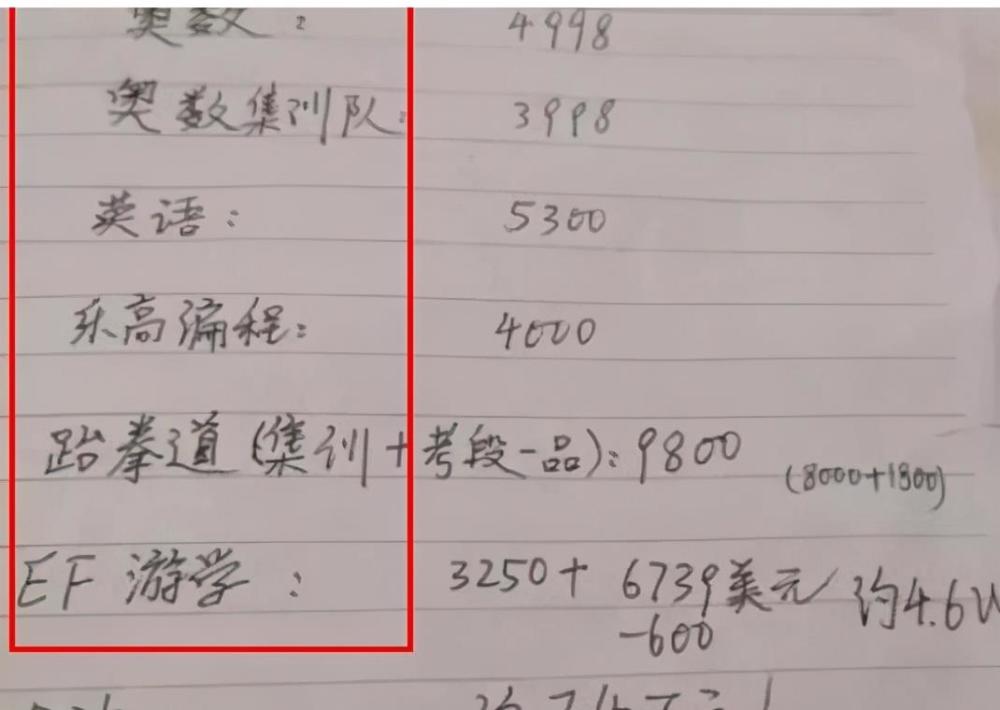 奥数: 4998
奥数集训队: 3998
英语: 5300
乐高编程: 4000
跆拳道(集训+考段一品): 9800 (8000+1800)
EF 游学: 3250+ 6739美元 约4.6W
-600